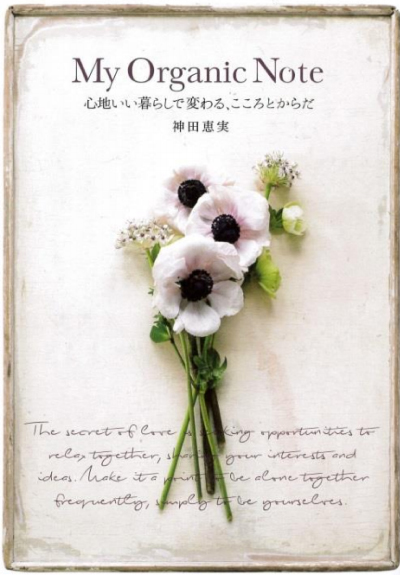 My Organic Note
心地いい暮らしで変わる、こころとからだ
神田恵実
The secret of love is seeking opportunities to
relax together, sharing your interests and
ideas. Make it a point to be alone together
frequently, simply to be yourselves.